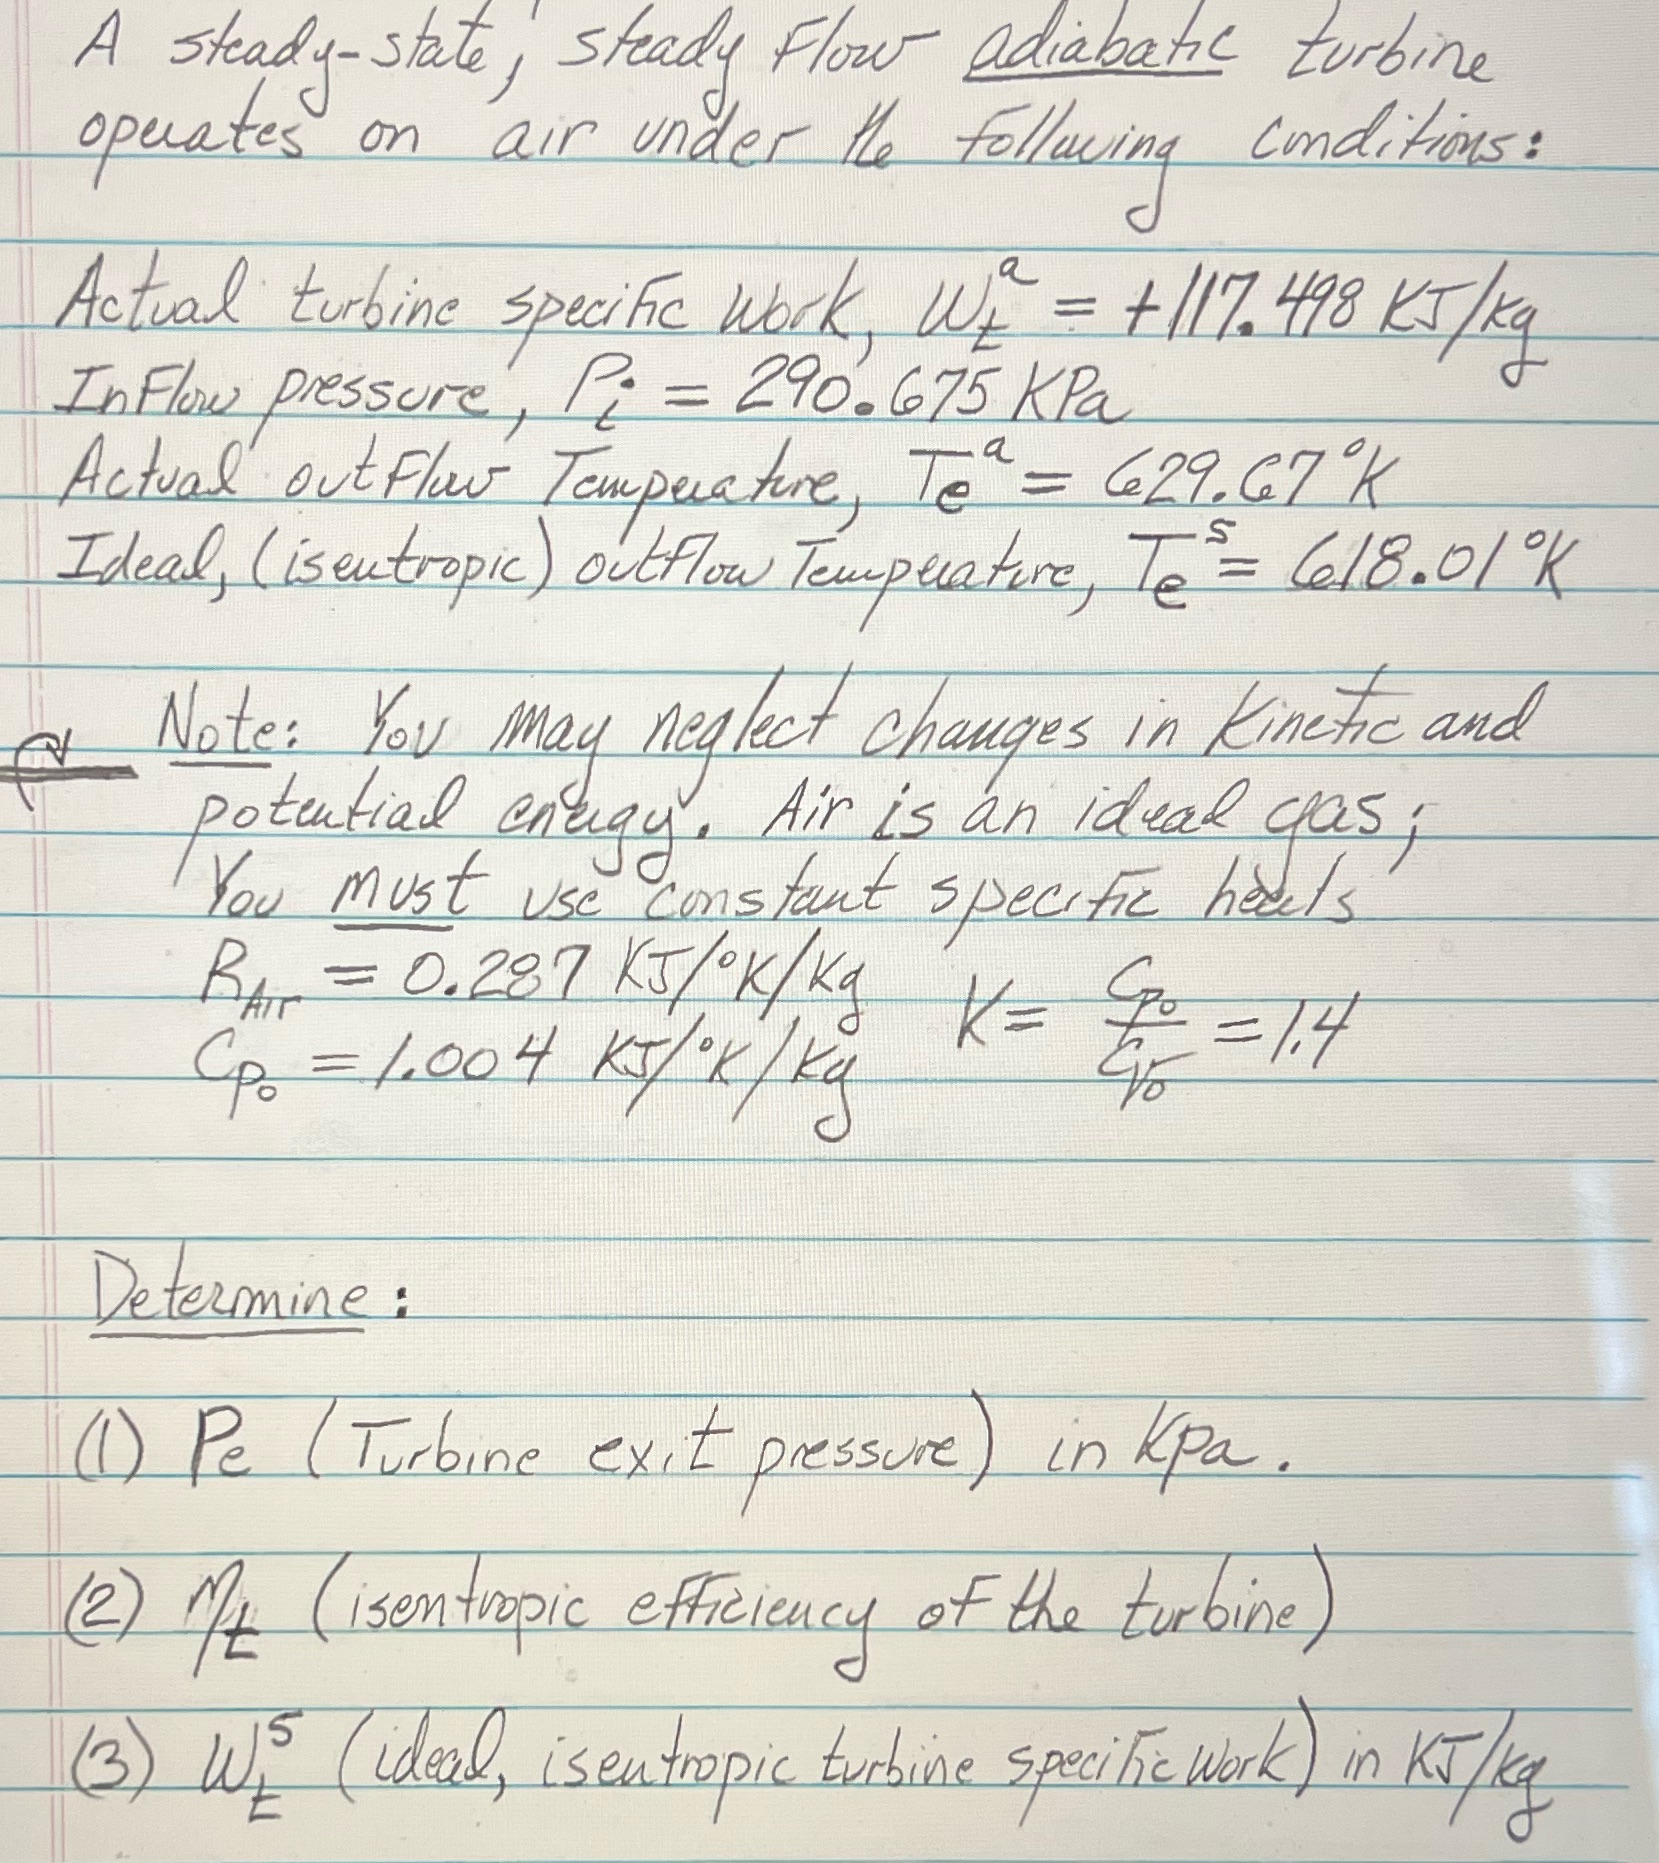 A steady-state, steady flow adiabatic turbine
operates on air under the following conditions:
Actual turbine specific work, Wₜᵃ = +117.498 KJ/kg
Inflow pressure, Pᵢ = 290.675 KPa
Actual outflow Temperature, Tₑᵃ = 629.67 °K
Ideal, (isentropic) outflow Temperature, Tₑˢ = 618.01 °K
Note: You may neglect changes in Kinetic and
potential energy. Air is an ideal gas;
You must use constant specific heats
R_Air = 0.287 KJ/°K/kg K = Cp₀/Cv₀ = 1.4
Cp₀ = 1.004 KJ/°K/kg
Determine:
(1) Pe (Turbine exit pressure) in Kpa.
(2) ηₜ (isentropic efficiency of the turbine)
(3) Wₜˢ (ideal, isentropic turbine specific work) in KJ/kg